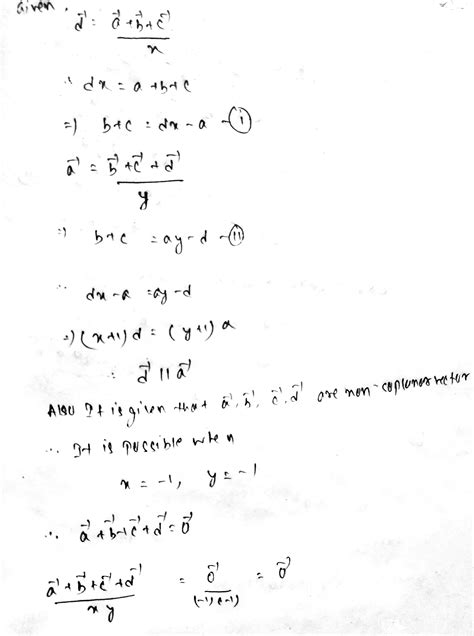 Given,
d⃗ = (a⃗ + b⃗ + c⃗)/x
∴ dx = a + b + c
⇒) b + c = dx - a -(i)
a⃗ = (b⃗ + c⃗ + d⃗)/y
⇒) b + c = ay - d -(ii)
∴ dx - a = ay - d
⇒) (x+1) d = (y+1) a
∴ d⃗ || a⃗
Also It is given that a⃗, b⃗, c⃗, d⃗ are non-coplanar vector
∴ It is possible when
x = -1, y = -1
∴ a⃗ + b⃗ + c⃗ + d⃗ = 0⃗
(a⃗ + b⃗ + c⃗ + d⃗)/xy = 0⃗/(-1)(-1) = 0⃗